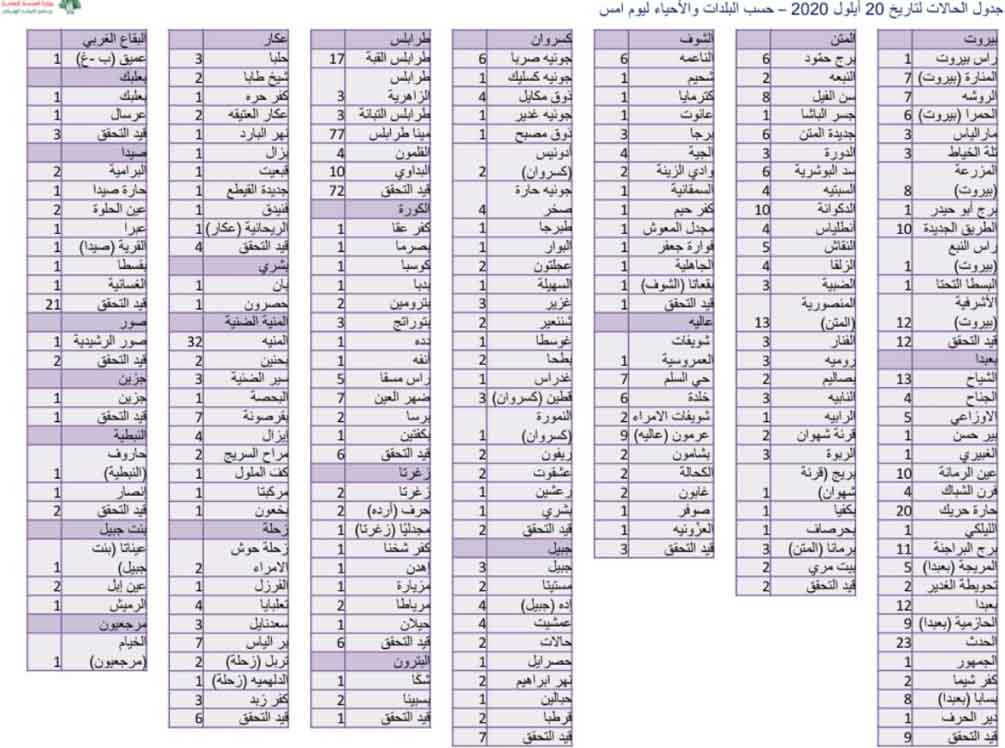 جدول الحالات لتاريخ 20 أيلول 2020 – حسب البلدات والأحياء ليوم امس
بيروت
راس بيروت 1
المنارة (بيروت) 7
الروشه 7
الحمرا (بيروت) 6
مارالياس 3
تلة الخياط 3
المزرعة
(بيروت) 8
برج أبو حيدر 1
الطريق الجديدة 10
راس النبع
(بيروت) 1
البسطا التحتا 1
الأشرفية
(بيروت) 12
قيد التحقق 12
بعبدا
الشياح 13
الجناح 4
الاوزاعي 5
بير حسن 1
الغبيري 1
عين الرمانة 10
فرن الشباك 4
حارة حريك 20
الليلكي 1
برج البراجنة 11
المريجة (بعبدا) 5
تحويطة الغدير 2
بعبدا 12
الحازمية (بعبدا) 9
الحدث 23
الجمهور 1
كفر شيما 2
بسابا (بعبدا) 8
دير الحرف 1
قيد التحقق 9
المتن
برج حمود 6
النبعه 2
سن الفيل 8
جسر الباشا 1
جديدة المتن 6
الدورة 3
سد البوشرية 6
السبتيه 4
الدكوانة 10
انطلياس 4
النقاش 5
الزلقا 4
الضبية 3
المنصورية
(المتن) 13
الفنار 3
روميه 3
بصاليم 2
النابيه 3
الرابيه 1
قرنة شهوان 2
الربوة 3
بريج (قرنة
شهوان) 1
بكفيا 1
بحرصاف 1
برمانا (المتن) 3
بيت مري 2
قيد التحقق 2
الشوف
الناعمه 6
شحيم 1
كترمايا 1
عانوت 1
برجا 3
الجية 4
وادي الزينة 2
السمقانية 1
كفر حيم 1
مجدل المعوش 1
فوارة جعفر 1
الجاهلية 1
بقعاتا (الشوف) 1
قيد التحقق 1
عاليه
شويفات
العمروسية 1
حي السلم 7
خلدة 6
شويفات الامراء 2
عرمون (عاليه) 9
بشامون 2
الكحالة 2
غابون 2
صوفر 1
العزونيه 1
قيد التحقق 3
كسروان
جونيه صربا 6
جونيه كسليك 1
ذوق مكايل 4
جونيه غدير 1
ذوق مصبح 1
أدونيس
(كسروان) 2
جونيه حارة
صخر 4
طبرجا 1
البوار 1
عجلتون 2
السهيلة 1
غزير 3
شننعير 2
غوسطا 1
بطحا 2
غدراس 1
قطين (كسروان) 3
النمورة
(كسروان) 1
ريفون 2
عشقوت 2
رعشين 1
بشري 1
قيد التحقق 2
جبيل
جبيل 3
مستيتا 2
إده (جبيل) 4
عمشيت 4
حالات 2
حصرايل 1
نهر ابراهيم 2
حبالين 1
قرطبا 2
قيد التحقق 7
طرابلس
طرابلس القبة 17
طرابلس
الزاهرية 3
طرابلس التبانة 3
مينا طرابلس 77
القلمون 4
البداوي 10
قيد التحقق 72
الكورة
كفر عقا 1
بصرما 1
كوسبا 1
بدبا 1
بترومين 2
بتوراتج 3
دده 1
أنفه 1
راس مسقا 5
ضهر العين 7
برسا 2
بكفتين 1
قيد التحقق 6
زغرتا
زغرتا 2
حرف (أرده) 2
مجدليا (زغرتا) 1
كفر شخنا 1
إهدن 1
مزيارة 1
مرياطا 2
حيلان 1
قيد التحقق 6
البترون
شكا 1
بسبينا 2
قيد التحقق 1
عكار
حلبا 3
شيخ طابا 2
كفر حره 1
عكار العتيقه 2
نهر البارد 1
بزال 1
قبعيت 1
جديدة القيطع 1
فنيدق 1
الريحانية (عكار) 1
قيد التحقق 4
بشري
بان 1
حصرون 1
المنية الضنية
المنيه 32
بحنين 2
سير الضنية 3
البحصة 1
بقرصونة 7
إيزال 4
مراح السريج 2
كف الملول 1
مركبتا 1
بخعون 1
زحلة
زحلة حوش
الامراء 2
الفرزل 1
تعلبايا 4
سعدنايل 3
بر الياس 7
تربل (زحلة) 2
الدلهميه (زحلة) 1
كفر زبد 3
قيد التحقق 6
البقاع الغربي
عميق (ب -غ) 1
بعلبك
بعلبك 1
عرسال 1
قيد التحقق 3
صيدا
البرامية 2
حارة صيدا 1
عين الحلوة 2
عبرا 1
القرية (صيدا) 1
بقسطا 1
الغسانية 1
قيد التحقق 21
صور
صور الرشيدية 1
قيد التحقق 2
جزين
جزين 1
قيد التحقق 1
النبطية
حاروف
(النبطية) 1
إنصار 1
قيد التحقق 2
بنت جبيل
عيناتا (بنت
جبيل) 1
عين إبل 2
الرميش 1
مرجعيون
الخيام
(مرجعيون) 1